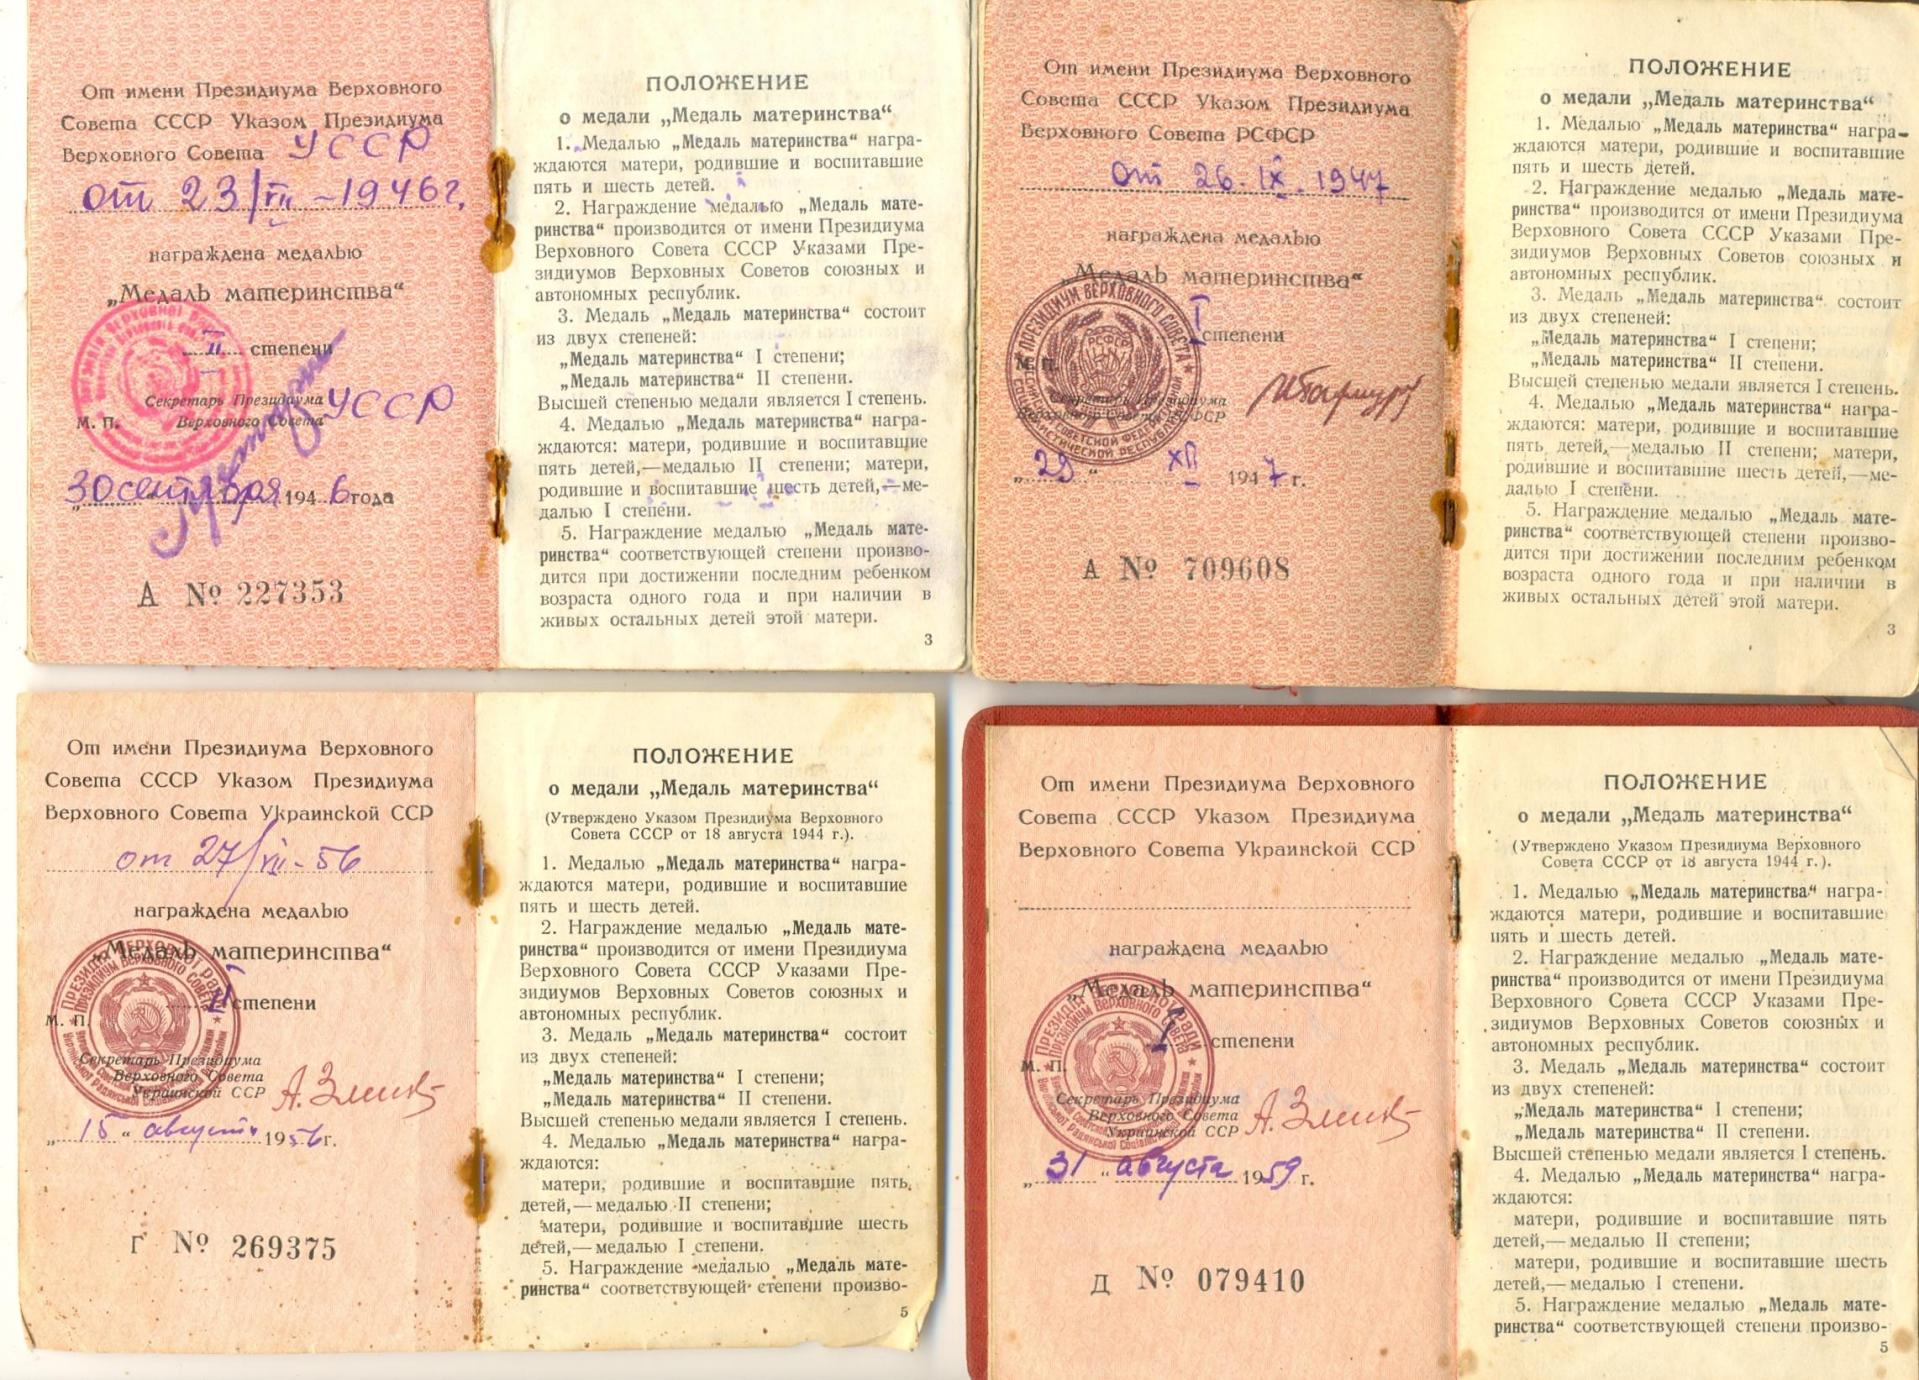 От имени Президиума Верховного
Совета СССР Указом Президиума
Верховного Совета УССР
от 23/VII –1946 г.
награждена медалью
„Медаль материнства“
II степени
Секретарь Президиума
Верховного Совета УССР
М. П.
„30 сентября 1946 года
А № 227353
ПОЛОЖЕНИЕ
о медали „Медаль материнства“
1. Медалью „Медаль материнства“ награ-
ждаются матери, родившие и воспитавшие
пять и шесть детей.
2. Награждение медалью „Медаль мате-
ринства“ производится от имени Президиума
Верховного Совета СССР Указами Пре-
зидиумов Верховных Советов союзных и
автономных республик.
3. Медаль „Медаль материнства“ состоит
из двух степеней:
„Медаль материнства“ I степени;
„Медаль материнства“ II степени.
Высшей степенью медали является I степень.
4. Медалью „Медаль материнства“ награ-
ждаются: матери, родившие и воспитавшие
пять детей,—медалью II степени; матери,
родившие и воспитавшие шесть детей,—ме-
далью I степени.
5. Награждение медалью „Медаль мате-
ринства“ соответствующей степени произво-
дится при достижении последним ребенком
возраста одного года и при наличии в
живых остальных детей этой матери.
3
От имени Президиума Верховного
Совета СССР Указом Президиума
Верховного Совета РСФСР
от 26.IX.1947
награждена медалью
„Медаль материнства“
I степени
ПРЕЗИДИУМ ВЕРХОВНОГО СОВЕТА
РСФСР
М. П.
Секретарь Президиума
Верховного Совета РСФСР
„29“ XII 1947 г.
А № 709608
ПОЛОЖЕНИЕ
о медали „Медаль материнства“
1. Медалью „Медаль материнства“ награ-
ждаются матери, родившие и воспитавшие
пять и шесть детей.
2. Награждение медалью „Медаль мате-
ринства“ производится от имени Президиума
Верховного Совета СССР Указами Пре-
зидиумов Верховных Советов союзных и
автономных республик.
3. Медаль „Медаль материнства“ состоит
из двух степеней:
„Медаль материнства“ I степени;
„Медаль материнства“ II степени.
Высшей степенью медали является I степень.
4. Медалью „Медаль материнства“ награ-
ждаются: матери, родившие и воспитавшие
пять детей,—медалью II степени; матери,
родившие и воспитавшие шесть детей,—ме-
далью I степени.
5. Награждение медалью „Медаль мате-
ринства“ соответствующей степени произво-
дится при достижении последним ребенком
возраста одного года и при наличии в
живых остальных детей этой матери.
3
От имени Президиума Верховного
Совета СССР Указом Президиума
Верховного Совета Украинской ССР
от 27/VII-56
награждена медалью
„Медаль материнства“
II степени
М. П.
Секретарь Президиума
Верховного Совета
Украинской ССР
„15“ августа 1956 г.
Г № 269375
ПОЛОЖЕНИЕ
о медали „Медаль материнства“
(Утверждено Указом Президиума Верховного
Совета СССР от 18 августа 1944 г.).
1. Медалью „Медаль материнства“ награ-
ждаются матери, родившие и воспитавшие
пять и шесть детей.
2. Награждение медалью „Медаль мате-
ринства“ производится от имени Президиума
Верховного Совета СССР Указами Пре-
зидиумов Верховных Советов союзных и
автономных республик.
3. Медаль „Медаль материнства“ состоит
из двух степеней:
„Медаль материнства“ I степени;
„Медаль материнства“ II степени.
Высшей степенью медали является I степень.
4. Медалью „Медаль материнства“ награ-
ждаются:
матери, родившие и воспитавшие пять
детей,—медалью II степени;
матери, родившие и воспитавшие шесть
детей,—медалью I степени.
5. Награждение медалью „Медаль мате-
ринства“ соответствующей степени произво-
5
От имени Президиума Верховного
Совета СССР Указом Президиума
Верховного Совета Украинской ССР
награждена медалью
„Медаль материнства“
I степени
М. П.
Секретарь Президиума
Верховного Совета
Украинской ССР
„31“ августа 1959 г.
Д № 079410
ПОЛОЖЕНИЕ
о медали „Медаль материнства“
(Утверждено Указом Президиума Верховного
Совета СССР от 18 августа 1944 г.).
1. Медалью „Медаль материнства“ награ-
ждаются матери, родившие и воспитавшие
пять и шесть детей.
2. Награждение медалью „Медаль мате-
ринства“ производится от имени Президиума
Верховного Совета СССР Указами Пре-
зидиумов Верховных Советов союзных и
автономных республик.
3. Медаль „Медаль материнства“ состоит
из двух степеней:
„Медаль материнства“ I степени;
„Медаль материнства“ II степени.
Высшей степенью медали является I степень.
4. Медалью „Медаль материнства“ награ-
ждаются:
матери, родившие и воспитавшие пять
детей,—медалью II степени;
матери, родившие и воспитавшие шесть
детей,—медалью I степени.
5. Награждение медалью „Медаль мате-
ринства“ соответствующей степени произво-
5